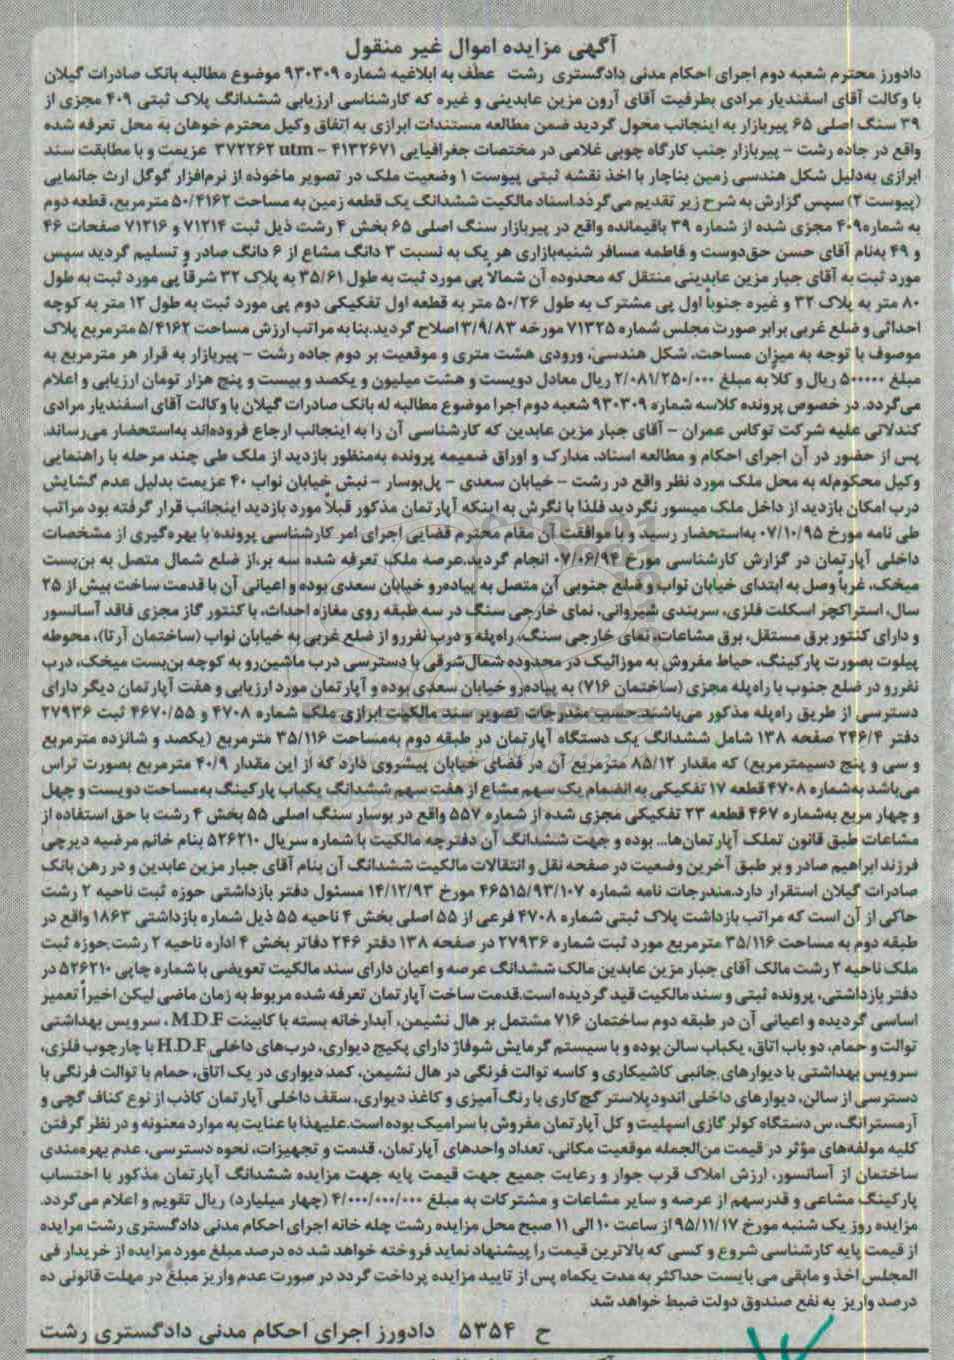 آگهی مزایده اموال غیر منقول
دادورز محترم شعبه دوم اجرای احکام مدنی دادگستری رشت عطف به ابلاغیه شماره ۹۳۰۳۰۹ موضوع مطالبه بانک صادرات گیلان
با وکالت آقای اسفندیار مرادی بطرفیت آقای آرون مزین عابدینی و غیره که کارشناسی ارزیابی ششدانگ پلاک ثبتی ۴۰۹ مجزی از
۳۹ سنگ اصلی ۶۵ پیربازار به اینجانب محول گردید ضمن مطالعه مستندات ابرازی به اتفاق وکیل محترم خوهان به محل تعرفه شده
واقع در جاده رشت - پیربازار جنب کارگاه چوبی غلامی در مختصات جغرافیایی ۴۱۳۲۶۷۱ - utm ۳۷۲۲۶۲ عزیمت و با مطابقت سند
ابرازی به‌دلیل شکل هندسی زمین بناچار با اخذ نقشه ثبتی پیوست ۱ وضعیت ملک در تصویر ماخوذه از نرم‌افزار گوگل ارث جانمایی
(پیوست ۲) سپس گزارش به شرح زیر تقدیم می‌گردد.اسناد مالکیت ششدانگ یک قطعه زمین به مساحت ۵۰/۴۱۶۲ مترمربع، قطعه دوم
به شماره۴۰۹ مجزی شده از شماره ۳۹ باقیمانده واقع در پیربازار سنگ اصلی ۶۵ بخش ۴ رشت ذیل ثبت ۷۱۲۱۴ و ۷۱۲۱۶ صفحات ۴۶
و ۴۹ به‌نام آقای حسن حق‌دوست و فاطمه مسافر شنبه‌بازاری هر یک به نسبت ۳ دانگ مشاع از ۶ دانگ صادر و تسلیم گردید سپس
مورد ثبت به آقای جبار مزین عابدینی منتقل که محدوده آن شمالاً پی مورد ثبت به طول ۳۵/۶۱ به پلاک ۳۲ شرقاً پی مورد ثبت به طول
۸۰ متر به پلاک ۳۲ و غیره جنوباً اول پی مشترک به طول ۵۰/۲۶ متر به قطعه اول تفکیکی دوم پی مورد ثبت به طول ۱۲ متر به کوچه
احداثی و ضلع غربی برابر صورت مجلس شماره ۷۱۳۲۵ مورخه ۳/۹/۸۳ اصلاح گردید.بنا به مراتب ارزش مساحت ۵/۴۱۶۲ مترمربع پلاک
موصوف با توجه به میزان مساحت، شکل هندسی، ورودی هشت متری و موقعیت بر دوم جاده رشت - پیربازار به قرار هر مترمربع به
مبلغ ۵۰۰۰۰۰ ریال و کلاً به مبلغ ۲/۰۸۱/۲۵۰/۰۰۰ ریال معادل دویست و هشت میلیون و یکصد و بیست و پنج هزار تومان ارزیابی و اعلام
می‌گردد. در خصوص پرونده کلاسه شماره ۹۳۰۳۰۹ شعبه دوم اجرا موضوع مطالبه له بانک صادرات گیلان با وکالت آقای اسفندیار مرادی
کندلاتی علیه شرکت توکاس عمران - آقای جبار مزین عابدین که کارشناسی آن را به اینجانب ارجاع فروده‌اند به‌استحضار می‌رساند.
پس از حضور در آن اجرای احکام و مطالعه اسناد، مدارک و اوراق ضمیمه پرونده به‌منظور بازدید از ملک طی چند مرحله با راهنمایی
وکیل محکوم‌له به محل ملک مورد نظر واقع در رشت - خیابان سعدی - پل‌بوسار - نبش خیابان نواب ۴۰ عزیمت بدلیل عدم گشایش
درب امکان بازدید از داخل ملک میسور نگردید فلذا با نگرش به اینکه آپارتمان مذکور قبلاً مورد بازدید اینجانب قرار گرفته بود مراتب
طی نامه مورخ ۰۷/۱۰/۹۵ به‌استحضار رسید و با موافقت آن مقام محترم قضایی اجرای امر کارشناسی پرونده با بهره‌گیری از مشخصات
داخلی آپارتمان در گزارش کارشناسی مورخ ۰۷/۰۶/۹۴ انجام گردید.عرصه ملک تعرفه شده سه بر،از ضلع شمال متصل به بن‌بست
میخک، غرباً وصل به ابتدای خیابان نواب و ضلع جنوبی آن متصل به پیاده‌رو خیابان سعدی بوده و اعیانی آن با قدمت ساخت بیش از ۲۵
سال، استراکچر اسکلت فلزی، سربندی شیروانی، نمای خارجی سنگ در سه طبقه روی مغازه احداث، با کنتور گاز مجزی فاقد آسانسور
و دارای کنتور برق مستقل، برق مشاعات، نمای خارجی سنگ، راه‌پله و درب نفررو از ضلع غربی به خیابان نواب (ساختمان آرتا)، محوطه
پیلوت بصورت پارکینگ، حیاط مفروش به موزائیک در محدوده شمال‌شرقی با دسترسی درب ماشین‌رو به کوچه بن‌بست میخک، درب
نفررو در ضلع جنوب با راه‌پله مجزی (ساختمان ۷۱۶) به پیاده‌رو خیابان سعدی بوده و آپارتمان مورد ارزیابی و هفت آپارتمان دیگر دارای
دسترسی از طریق راه‌پله مذکور می‌باشند.حسب مندرجات تصویر سند مالکیت ابرازی ملک شماره ۴۷۰۸ و ۴۶۷۰/۵۵ ثبت ۲۷۹۳۶
دفتر ۲۴۶/۴ صفحه ۱۳۸ شامل ششدانگ یک دستگاه آپارتمان در طبقه دوم به‌مساحت ۳۵/۱۱۶ مترمربع (یکصد و شانزده مترمربع
و سی و پنج دسیمترمربع) که مقدار ۸۵/۱۲ مترمربع آن در فضای خیابان پیشروی دارد که از این مقدار ۴۰/۹ مترمربع بصورت تراس
می‌باشد به‌شماره ۴۷۰۸ قطعه ۱۷ تفکیکی به انضمام یک سهم مشاع از هفت سهم ششدانگ یکباب پارکینگ به‌مساحت دویست و چهل
و چهار مربع به‌شماره ۴۶۷ قطعه ۲۳ تفکیکی مجزی شده از شماره ۵۵۷ واقع در بوسار سنگ اصلی ۵۵ بخش ۴ رشت با حق استفاده از
مشاعات طبق قانون تملک آپارتمان‌ها... بوده و جهت ششدانگ آن دفترچه مالکیت با شماره سریال ۵۲۶۲۱۰ بنام خانم مرضیه دیرچی
فرزند ابراهیم صادر و بر طبق آخرین وضعیت در صفحه نقل و انتقالات مالکیت ششدانگ آن بنام آقای جبار مزین عابدین و در رهن بانک
صادرات گیلان استقرار دارد.مندرجات نامه شماره ۴۶۵۱۵/۹۳/۱۰۷ مورخ ۱۴/۱۲/۹۳ مسئول دفتر بازداشتی حوزه ثبت ناحیه ۲ رشت
حاکی از آن است که مراتب بازداشت پلاک ثبتی شماره ۴۷۰۸ فرعی از ۵۵ اصلی بخش ۴ ناحیه ۵۵ ذیل شماره بازداشتی ۱۸۶۳ واقع در
طبقه دوم به مساحت ۳۵/۱۱۶ مترمربع مورد ثبت شماره ۲۷۹۳۶ در صفحه ۱۳۸ دفتر ۲۴۶ دفاتر بخش ۴ اداره ناحیه ۲ رشت.حوزه ثبت
ملک ناحیه ۲ رشت مالک آقای جبار مزین عابدین مالک ششدانگ عرصه و اعیان دارای سند مالکیت تعویضی با شماره چاپی ۵۲۶۲۱۰ در
دفتر بازداشتی، پرونده ثبتی و سند مالکیت قید گردیده است.قدمت ساخت آپارتمان تعرفه شده مربوط به زمان ماضی لیکن اخیراً تعمیر
اساسی گردیده و اعیانی آن در طبقه دوم ساختمان ۷۱۶ مشتمل بر هال نشیمن، آبدارخانه بسته با کابینت M.D.F ، سرویس بهداشتی
توالت و حمام، دو باب اتاق، یکباب سالن بوده و با سیستم گرمایش شوفاژ دارای پکیج دیواری، درب‌های داخلی H.D.F با چارچوب فلزی،
سرویس بهداشتی با دیوارهای جانبی کاشیکاری و کاسه توالت فرنگی در هال نشیمن، کمد دیواری در یک اتاق، حمام با توالت فرنگی با
دسترسی از سالن، دیوارهای داخلی اندود پلاستر گچ‌کاری با رنگ‌آمیزی و کاغذ دیواری، سقف داخلی آپارتمان کاذب از نوع کناف گچی و
آرمسترانگ، س دستگاه کولر گازی اسپلیت و کل آپارتمان مفروش با سرامیک بوده است.علیهذا با عنایت به موارد معنونه و در نظر گرفتن
کلیه مولفه‌های مؤثر در قیمت من‌الجمله موقعیت مکانی، تعداد واحدهای آپارتمان، قدمت و تجهیزات، نحوه دسترسی، عدم بهره‌مندی
ساختمان از آسانسور، ارزش املاک قرب جوار و رعایت جمیع جهت قیمت پایه جهت مزایده ششدانگ آپارتمان مذکور با احتساب
پارکینگ مشاعی و قدرسهم از عرصه و سایر مشاعات و مشترکات به مبلغ ۴/۰۰۰/۰۰۰/۰۰۰ (چهار میلیارد) ریال تقویم و اعلام می‌گردد.
مزایده روز یک شنبه مورخ ۹۵/۱۱/۱۷ از ساعت ۱۰ الی ۱۱ صبح محل مزایده رشت چله خانه اجرای احکام مدنی دادگستری رشت مزایده
از قیمت پایه کارشناسی شروع و کسی که بالاترین قیمت را پیشنهاد نماید فروخته خواهد شد ده درصد مبلغ مورد مزایده از خریدار فی
المجلس اخذ و مابقی می بایست حداکثر به مدت یکماه پس از تایید مزایده پرداخت گردد در صورت عدم واریز مبلغ در مهلت قانونی ده
درصد واریز به نفع صندوق دولت ضبط خواهد شد
ح ۵۳۵۴ دادورز اجرای احکام مدنی دادگستری رشت